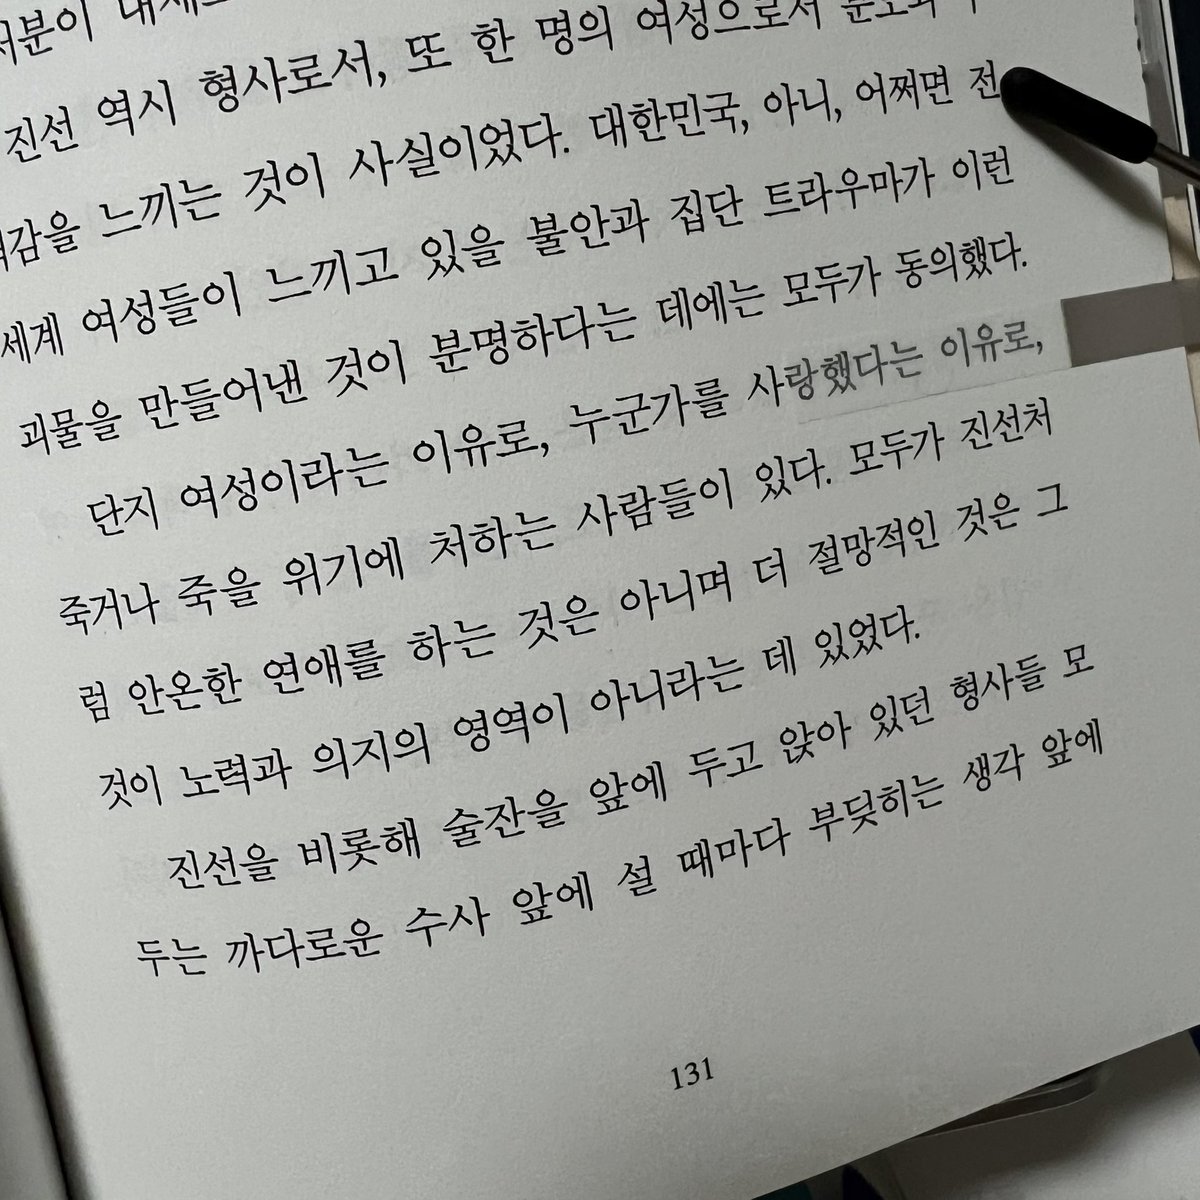 처분이
진선 역시 형사로서, 또 한 명의 여성으로서 분노와
력감을 느끼는 것이 사실이었다. 대한민국, 아니, 어쩌면 전
세계 여성들이 느끼고 있을 불안과 집단 트라우마가 이런
괴물을 만들어낸 것이 분명하다는 데에는 모두가 동의했다.
단지 여성이라는 이유로, 누군가를 사랑했다는 이유로,
죽거나 죽을 위기에 처하는 사람들이 있다. 모두가 진선처
럼 안온한 연애를 하는 것은 아니며 더 절망적인 것은 그
것이 노력과 의지의 영역이 아니라는 데 있었다.
진선을 비롯해 술잔을 앞에 두고 앉아 있던 형사들 모
두는 까다로운 수사 앞에 설 때마다 부딪히는 생각 앞에
131